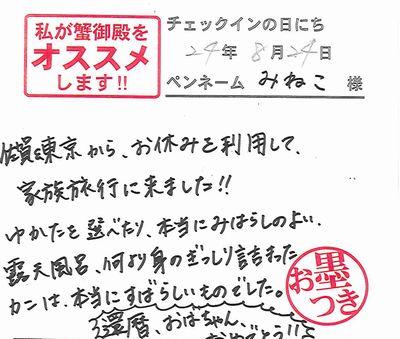 私が蟹御殿を
オススメ
します!!
チェックインの日にち
24年 8月 24日
ペンネーム みねこ 様
佐賀と東京から、お休みを利用して、
家族旅行に来ました!!
ゆかたを選べたり、本当にみはらしのよい、
露天風呂、何より身のぎっしり詰まった
カニは、本当にすばらしいものでした。
還暦、おばちゃん、
おめでとう!!
お墨つき